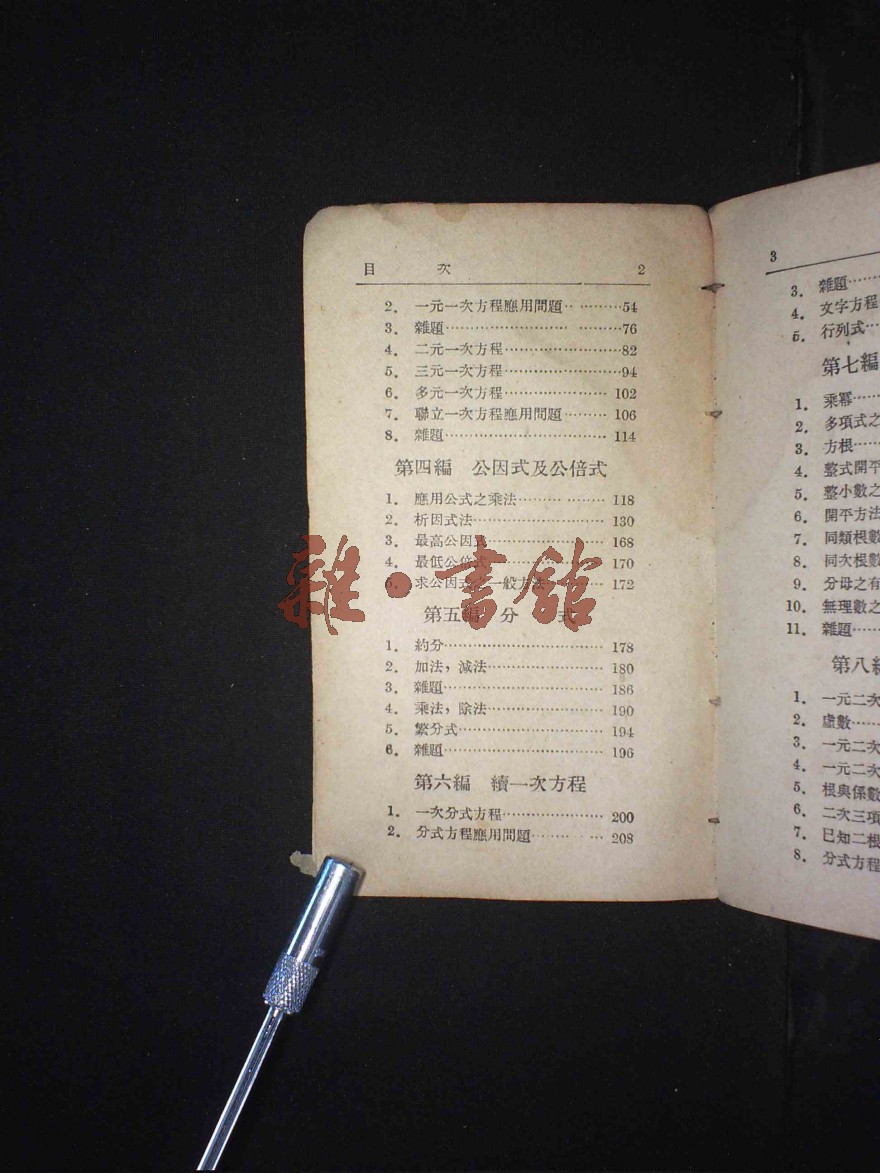 目 次 2
2. 一元一次方程應用問題………54
3. 雜題………76
4. 二元一次方程………82
5. 三元一次方程………94
6. 多元一次方程………102
7. 聯立一次方程應用問題………106
8. 雜題………114
第四編 公因式及公倍式
1. 應用公式之乘法………118
2. 析因式法………130
3. 最高公因式………168
4. 最低公倍式………170
5. 求公因式之一般方法………172
第五編 分 式
1. 約分………178
2. 加法，減法………180
3. 雜題………186
4. 乘法，除法………190
5. 繁分式………194
6. 雜題………196
第六編 續一次方程
1. 一次分式方程………200
2. 分式方程應用問題………208
雜·書館
3
3. 雜題……
4. 文字方程
5. 行列式…
第七編
1. 乘冪……
2. 多項式之
3. 方根……
4. 整式開平
5. 整小數之
6. 開平方法
7. 同類根數
8. 同次根數
9. 分母之有
10. 無理數之
11. 雜題……
第八編
1. 一元二次
2. 虛數……
3. 一元二次
4. 一元二次
5. 根與係數
6. 二次三項
7. 已知二根
8. 分式方程